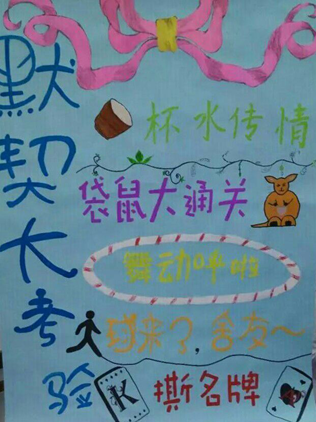 默契大考验
杯水传情
袋鼠大通关
舞动呼啦
球来了,舍友~
撕名牌
K